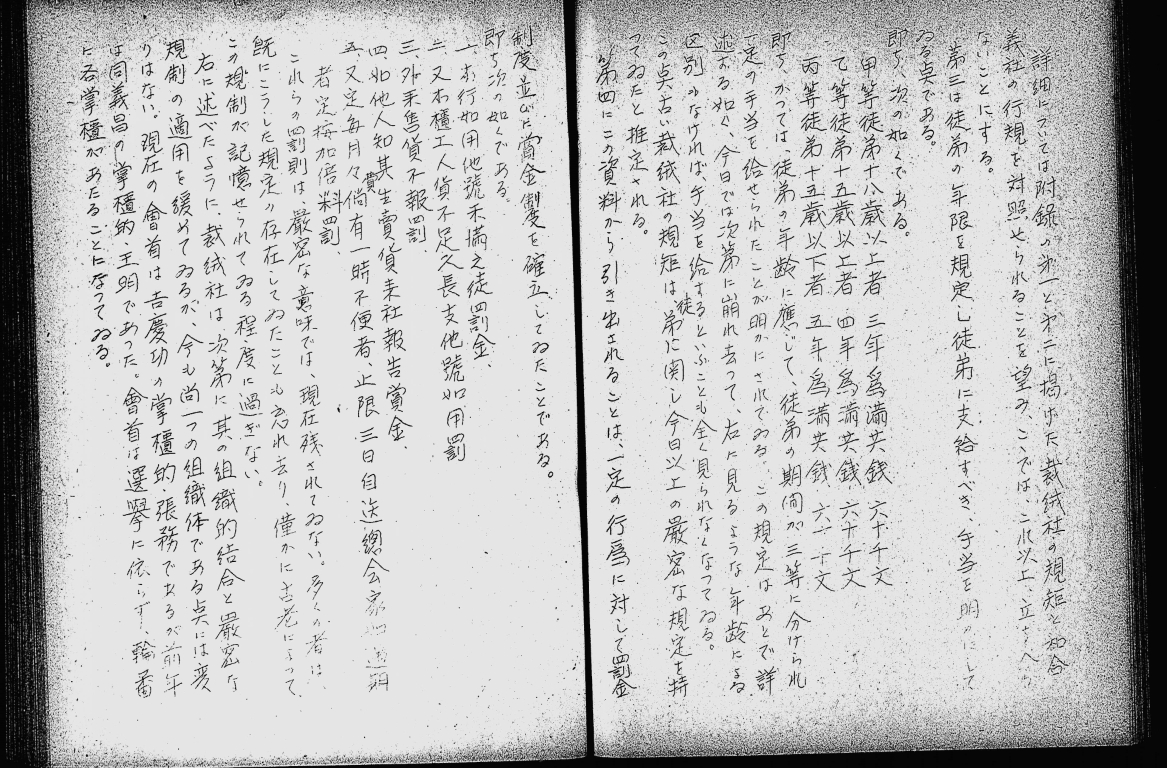 詳細については附録の第一と第二に掲げた裁絨社の規矩と和合
義社の行規を対照せられることを望み、ここでは、これ以上、立入
ないことにする。
第三は徒弟の年限を規定し徒弟に支給すべき、手当を明かにして
ゐる点である。
即ち、次の如くである。
甲等徒弟十八歳以上者 三年為満共銭 六十千文
乙等徒弟十五歳以上者 四年為満共銭 六十千文
丙等徒弟十五歳以下者 五年為満共銭 六十千文
即ち、かつては、徒弟の年齢に應じて、徒弟の期間が三等に分けられ
一定の手当を給せられたことが明かにされてゐる。この規定はあとで詳
述する如く、今日では次第に崩れ去って、右に見るような年齢による
区別がなければ、手当を給するといふことも全く見られなくなつてゐる。
この点古い裁絨社の規矩は、徒弟に関し今日以上の厳密な規定を持
つてゐたと推定される。
第四にこの資料から引き出されることは、一定の行為に対して罰金
制度並びに賞金制度を確立してゐたことである。
即ち次の如くである。
一、本行如用他號未満之徒罰金、
二、又本櫃工人貨不足欠長支他號如用罰
三、外来售貨不報罰
四、如他人知其生賣貨来社報告賞金、
五、又定毎月々費倘有一時不便者、止限三日自送總会家如過期
者定按加倍料罰
これらの罰則は、厳密な意味では、現在残されてゐない。多くの者は、
既にこうした規定が存在してゐたことも忘れ去り、僅かに古老によって
この規制が記憶せられてゐる程度に過ぎない。
右に述べたように、裁絨社は、次第に其の組織的結合と厳密な
規制の適用を緩めてゐるが、今も尚一つの組織体である点には変
りはない。現在の會首は吉慶功の掌櫃的、張務であるが前年
は同義昌の掌櫃的、王明であった。會首は選擧に依らず、輪番
に各掌櫃があたることになつてゐる。